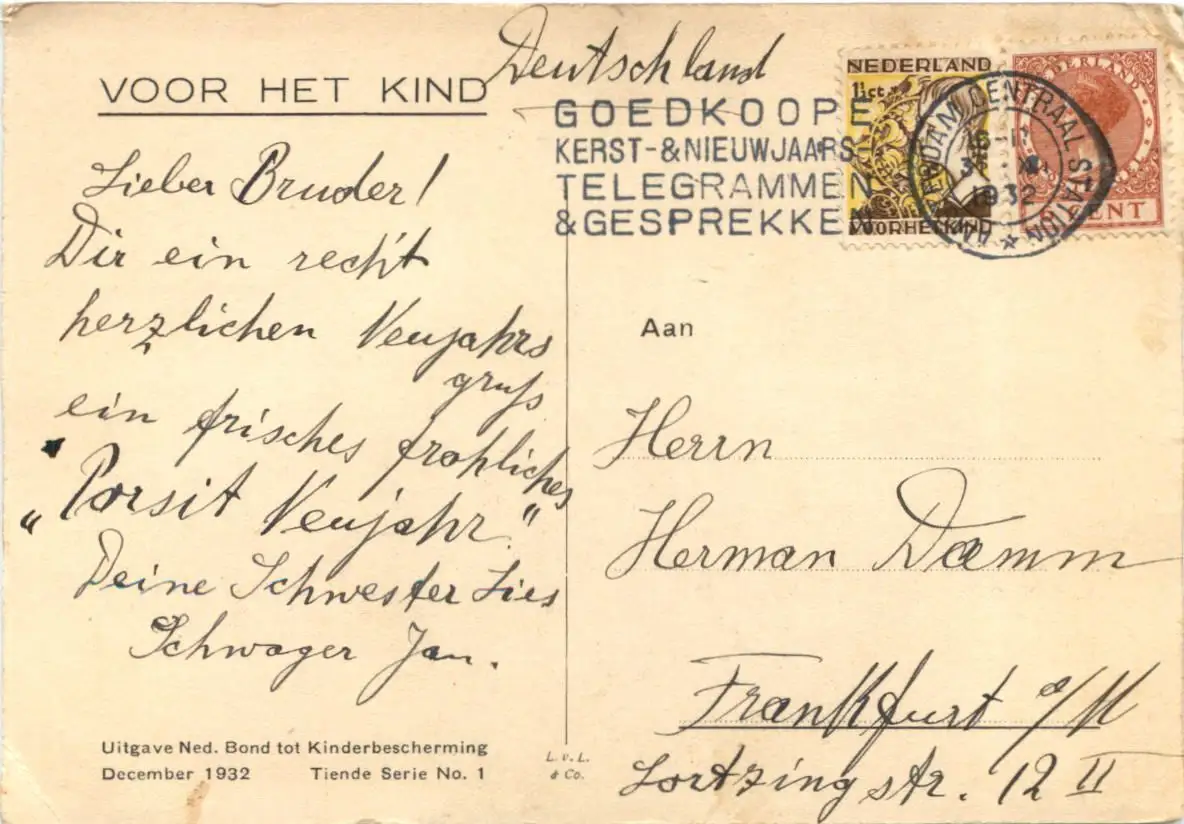 Deutschland
VOOR HET KIND
GOEDKOOPE
KERST-&NIEUWJAARS-
TELEGRAMMEN
&GESPREKKEN
NEDERLAND
1½ct
VOORHETKIND
NEDERLAND
CENT
AMSTERDAM CENTRAAL STATION
1932
Lieber Bruder!
Dir ein recht
herzlichen Neujahrs
gruß
ein frisches frohliches
"Porsit Neujahr."
Deine Schwester Lies
Schwager Jan.
Uitgave Ned. Bond tot Kinderbescherming
December 1932 Tiende Serie No. 1
L. v. L.
& Co.
Aan
Herrn
Herman Damm
Frankfurt a/M
Lortzingstr. 12 II